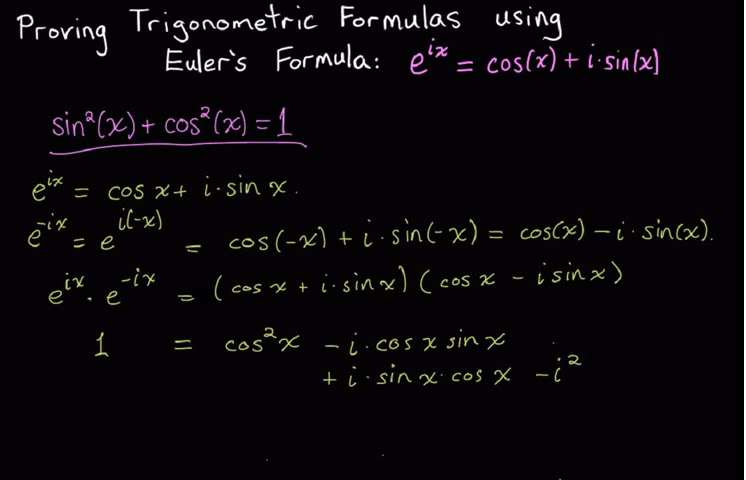 Proving Trigonometric Formulas using
Euler's Formula: e^{ix} = cos(x) + i·sin(x)
sin²(x) + cos²(x) = 1
e^{ix} = cos x + i·sin x.
e^{-ix} = e^{i(-x)} = cos(-x) + i·sin(-x) = cos(x) - i·sin(x).
e^{ix}·e^{-ix} = (cos x + i·sin x)(cos x - i sin x)
1 = cos²x - i·cos x sin x
+ i·sin x·cos x - i²